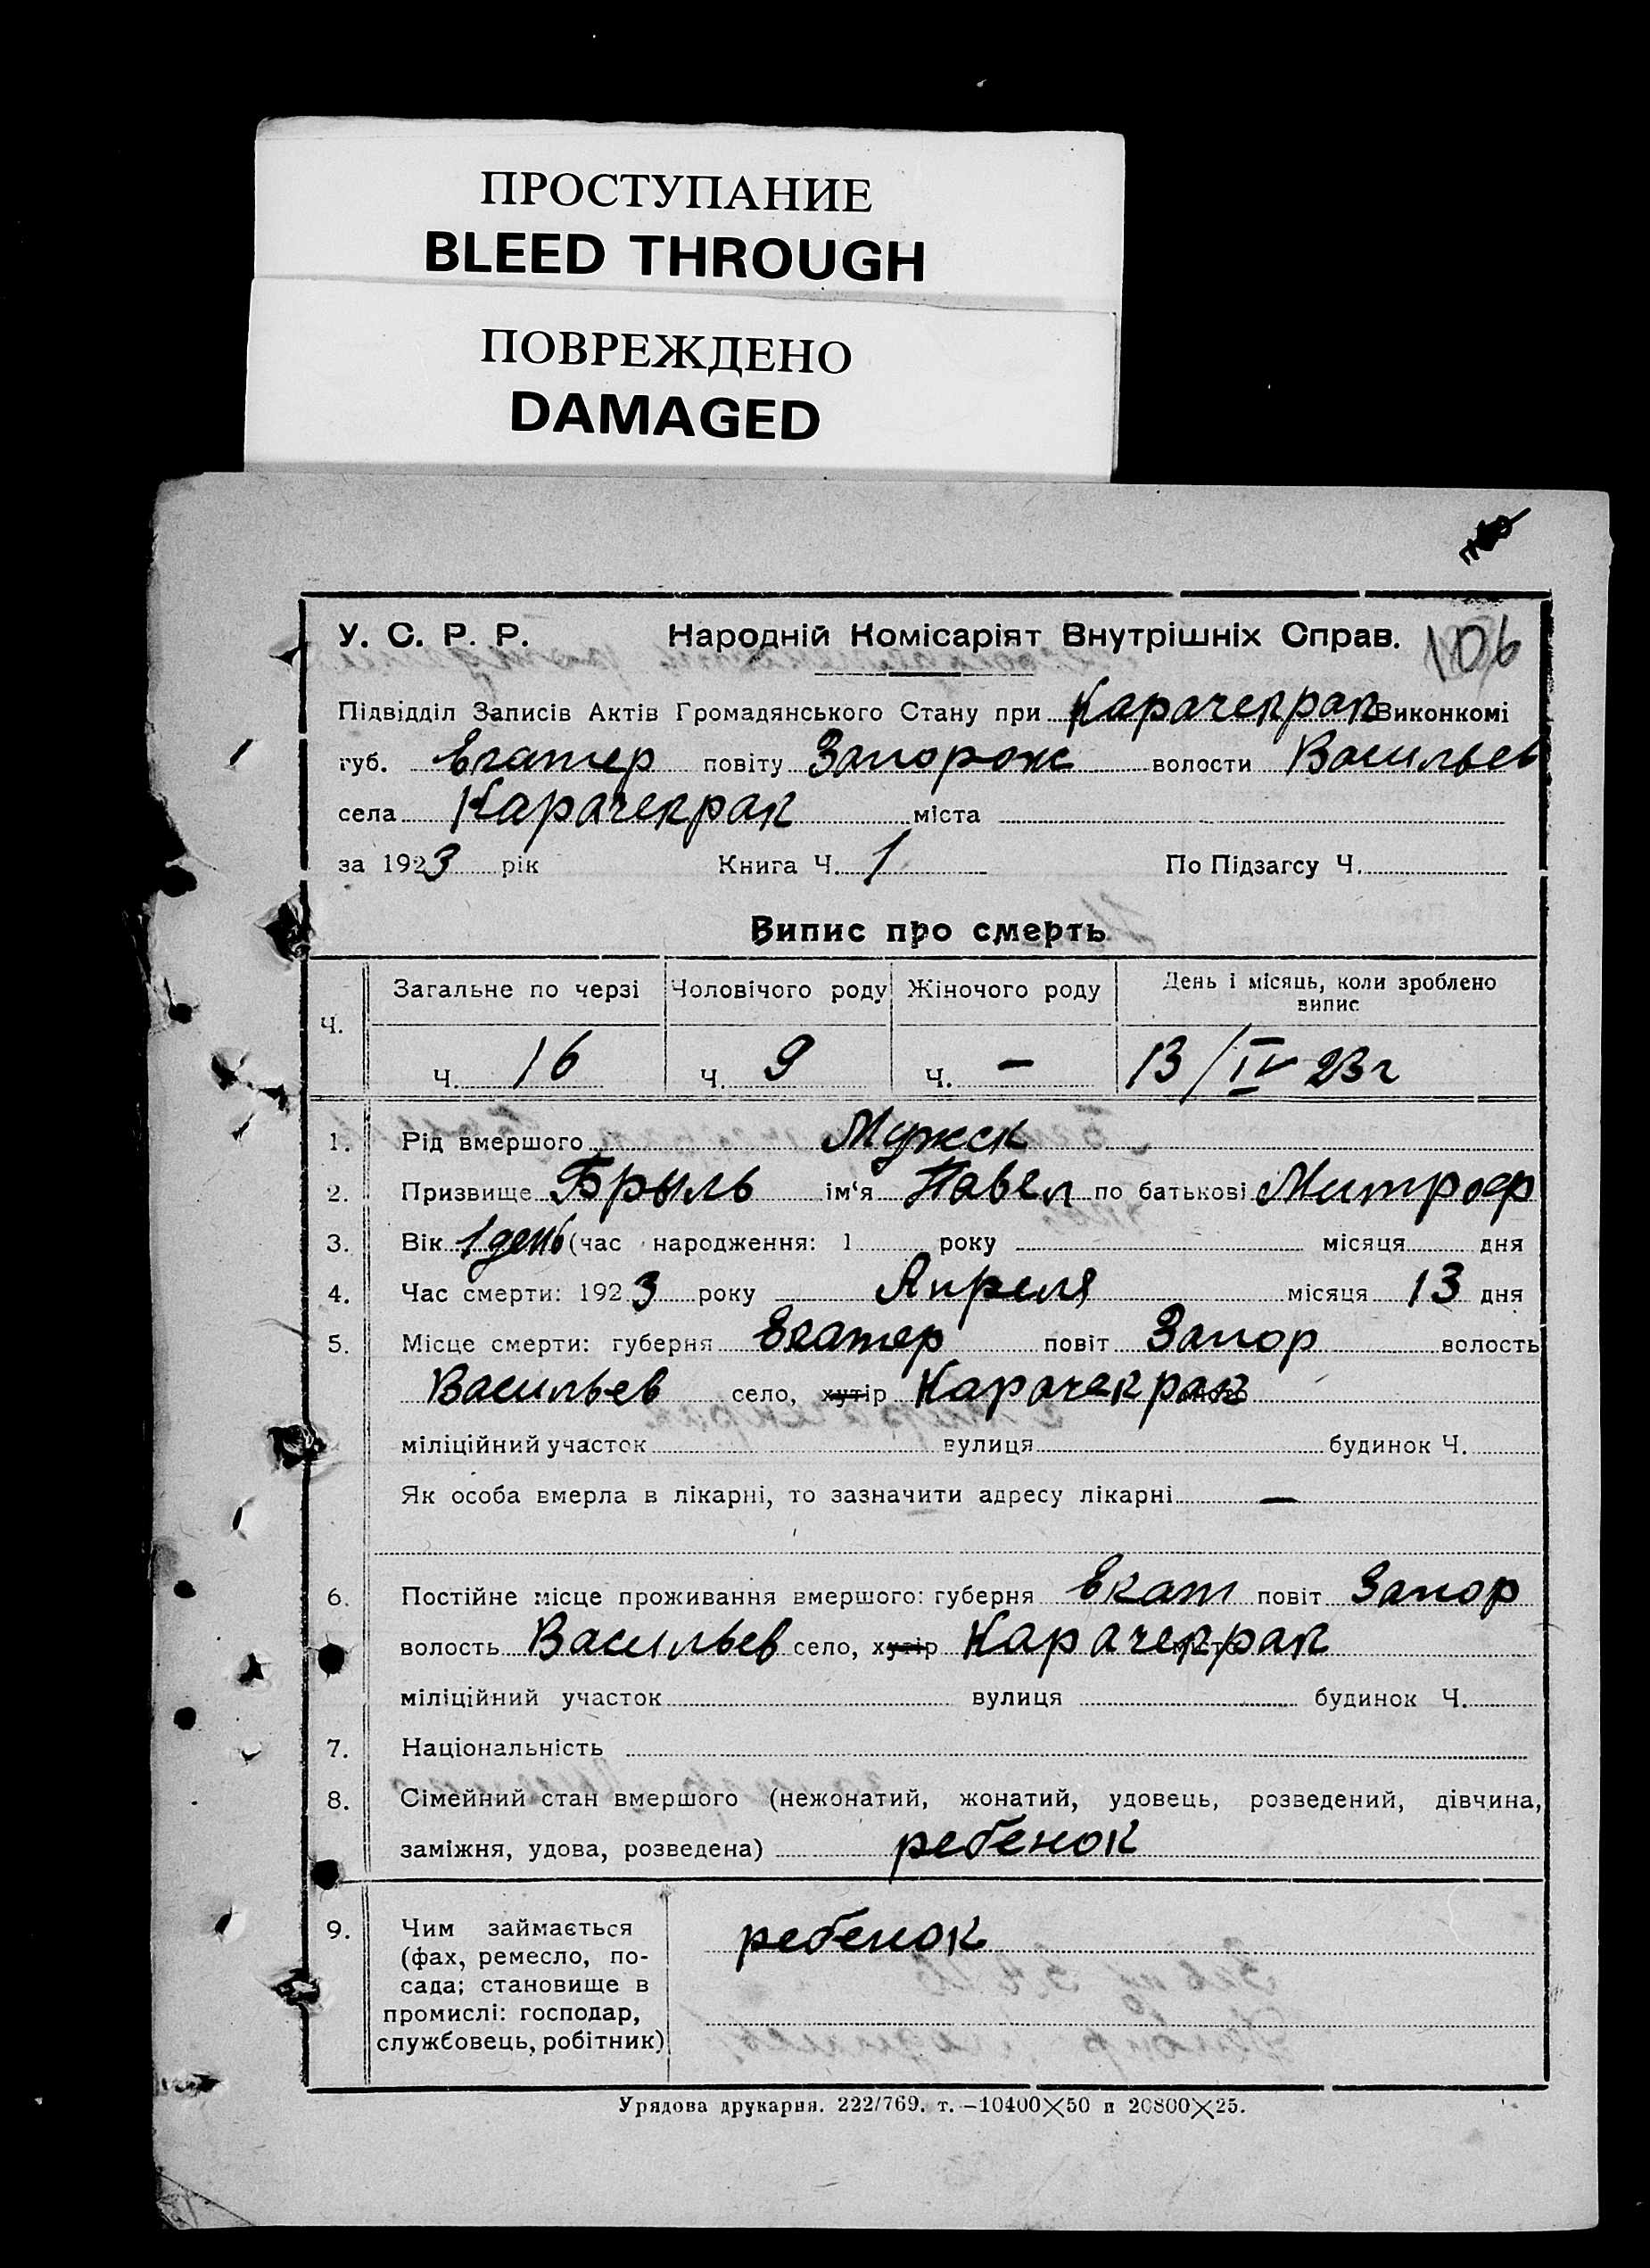 ПРОСТУПАНИЕ
BLEED THROUGH
ПОВРЕЖДЕНО
DAMAGED
У. С. Р. Р. Народній Комісаріят Внутрішніх Справ. 106
Підвідділ Записів Актів Громадянського Стану при Карачекрак Виконкомі
губ. Екатер повіту Запорож волости Васильев
села Карачекрак міста
за 1923 рік Книга Ч. 1 По Підзагсу Ч.
Випис про смерть
Ч. Загальне по черзі Чоловічого роду Жіночого роду День і місяць, коли зроблено
випис
Ч. 16 Ч. 9 Ч. — 13/IV 23 г
1. Рід вмершого Мужск
2. Призвище Брыль ім'я Павел по батькові Митроф
3. Вік 1 день (час народження: 1 року місяця дня
4. Час смерти: 1923 року Апреля місяця 13 дня
5. Місце смерти: губерня Екатер повіт Запор волость
Васильев село, хутір Карачекрак
міліційний участок вулиця будинок Ч.
Як особа вмерла в лікарні, то зазначити адресу лікарні —
6. Постійне місце проживання вмершого: губерня Екат повіт Запор
волость Васильев село, хутір Карачекрак
міліційний участок вулиця будинок Ч.
7. Національність
8. Сімейний стан вмершого (нежонатий, жонатий, удовець, розведений, дівчина,
заміжня, удова, розведена) ребенок
9. Чим займається ребенок
(фах, ремесло, по-
сада; становище в
промислі: господар,
службовець, робітник)
Урядова друкарня. 222/769. т. —10400×50 п 20800×25.